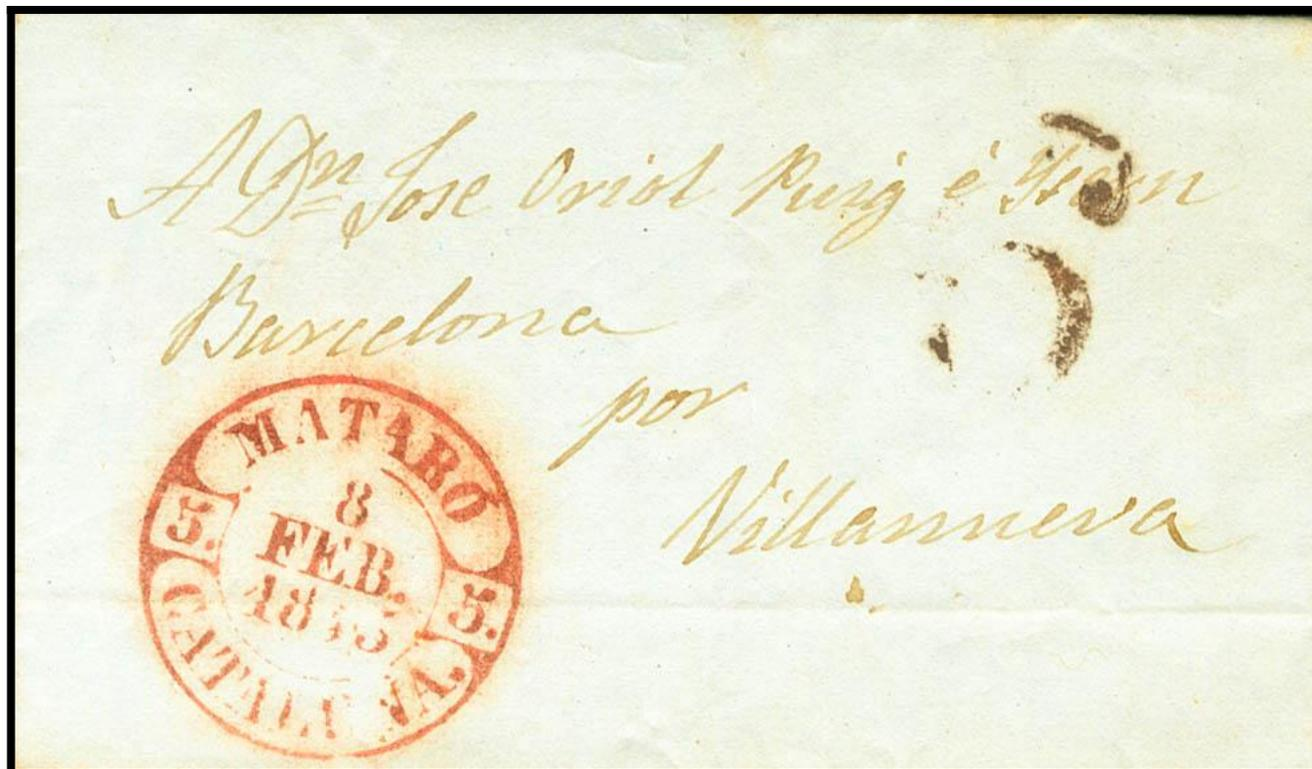 A Dn Jose Oriol Puig é
Barcelona
por
Villanueva
MATARÓ
8
FEB.
5. 5.
CATALUÑA.